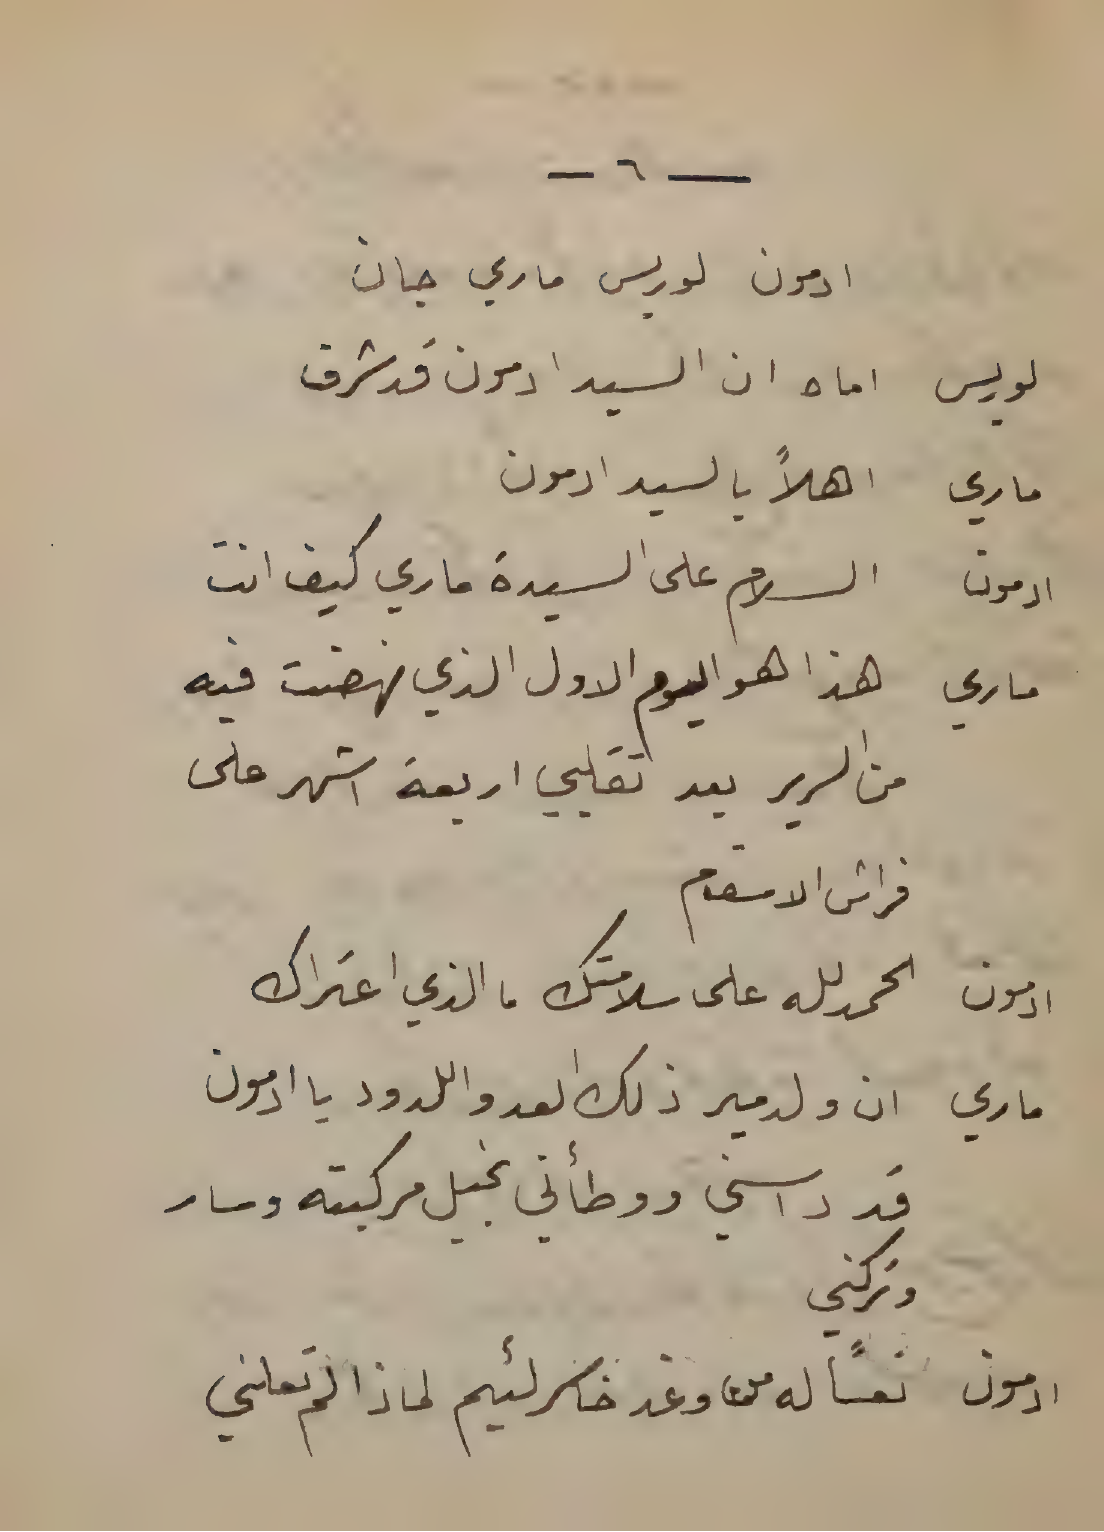 — ٦ —
ادمون لويس ماري جان
لويس اماه ان السيد ادمون قد شرف
ماري اهلاً بالسيد ادمون
ادمون السلام على السيدة ماري كيف انت
ماري هذا هو اليوم الاول الذي نهضت فيه
من السرير بعد تقلبي اربعة اشهر على
فراش الاسقام
ادمون الحمد لله على سلامتك ما الذي اعتراك
ماري ان ولدمير ذلك العدو اللدود يا ادمون
قد داسني ووطأني بخيل مركبته وسار
وتركني
ادمون تعساً له من وغد خاسر لئيم لماذا لم تعلني